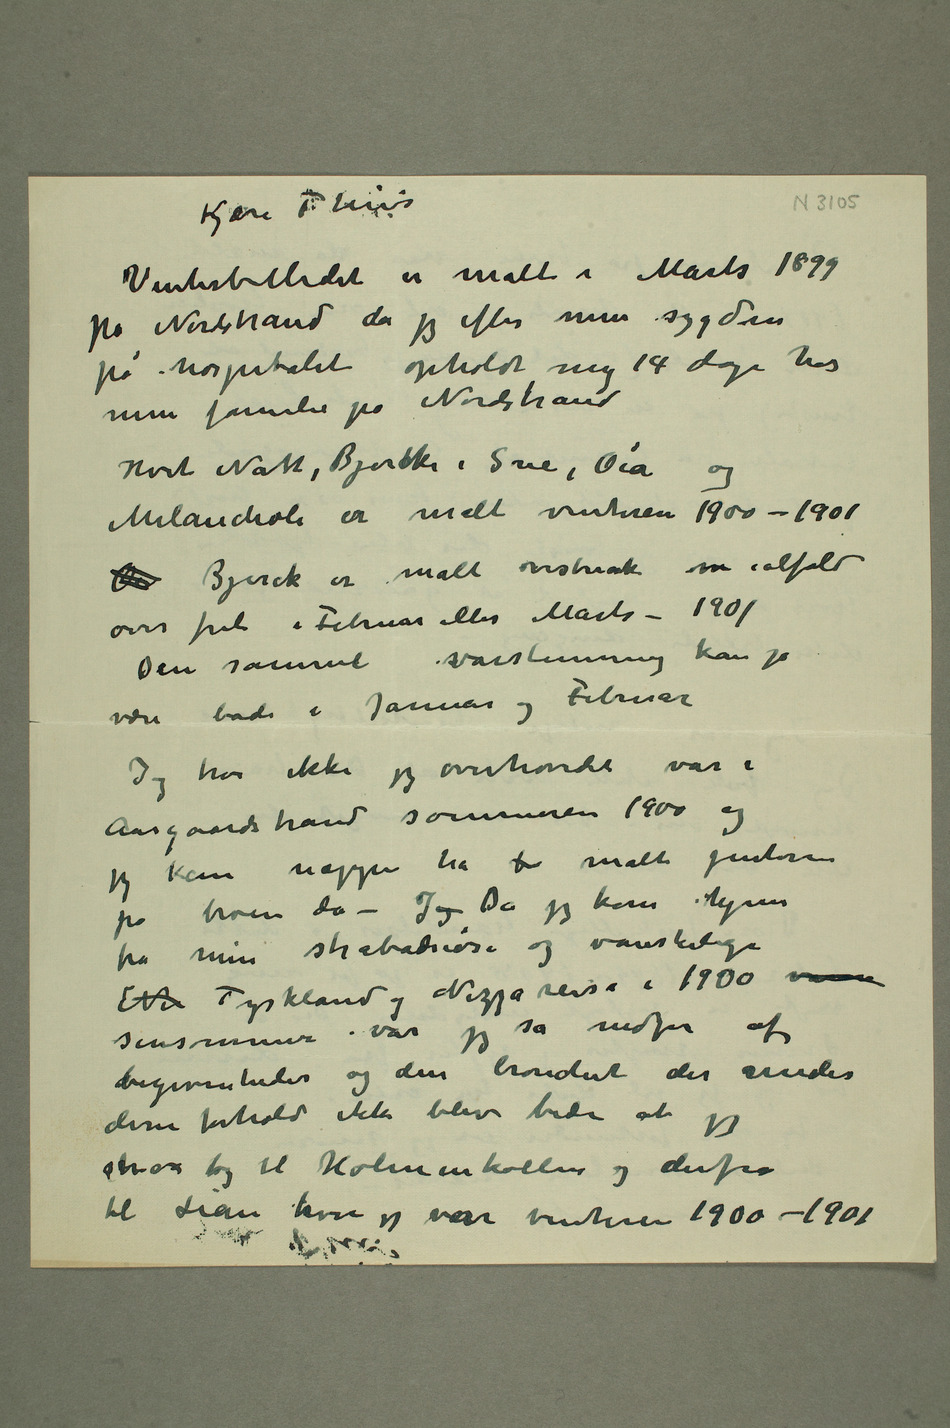 N 3105
Kjære Thiis
Vinterbilledet er malt i Marts 1899
på Nordstrand da jeg efter min sygdom
på hospitalet opholdt mig 14 dage hos
min familie på Nordstrand
Hvit Natt, Bjerke i Sne, Öia og
Melancholi er malt vinteren 1900 – 1901
Bjerck er malt ialfald
over frit i Februar eller Marts – 1901
Den samme varstemning kan jo
være både i Januar og Februar
Jeg tror ikke jeg overhovedet var i
Aasgaardstrand sommeren 1900 og
jeg kan neppe ha malt jenterne
på broen da – Jeg Da jeg kom hjem
fra min strabadsiøse og vanskelige
Tyskland og Nizzareise i 1900
sensommer var jeg så nedfor af
begivenheder og den brændevin der under
disse forhold ikke blev bedre at jeg
strax tog til Holmenkollen og derfra
til Lian hvor jeg var vinteren 1900 – 1901